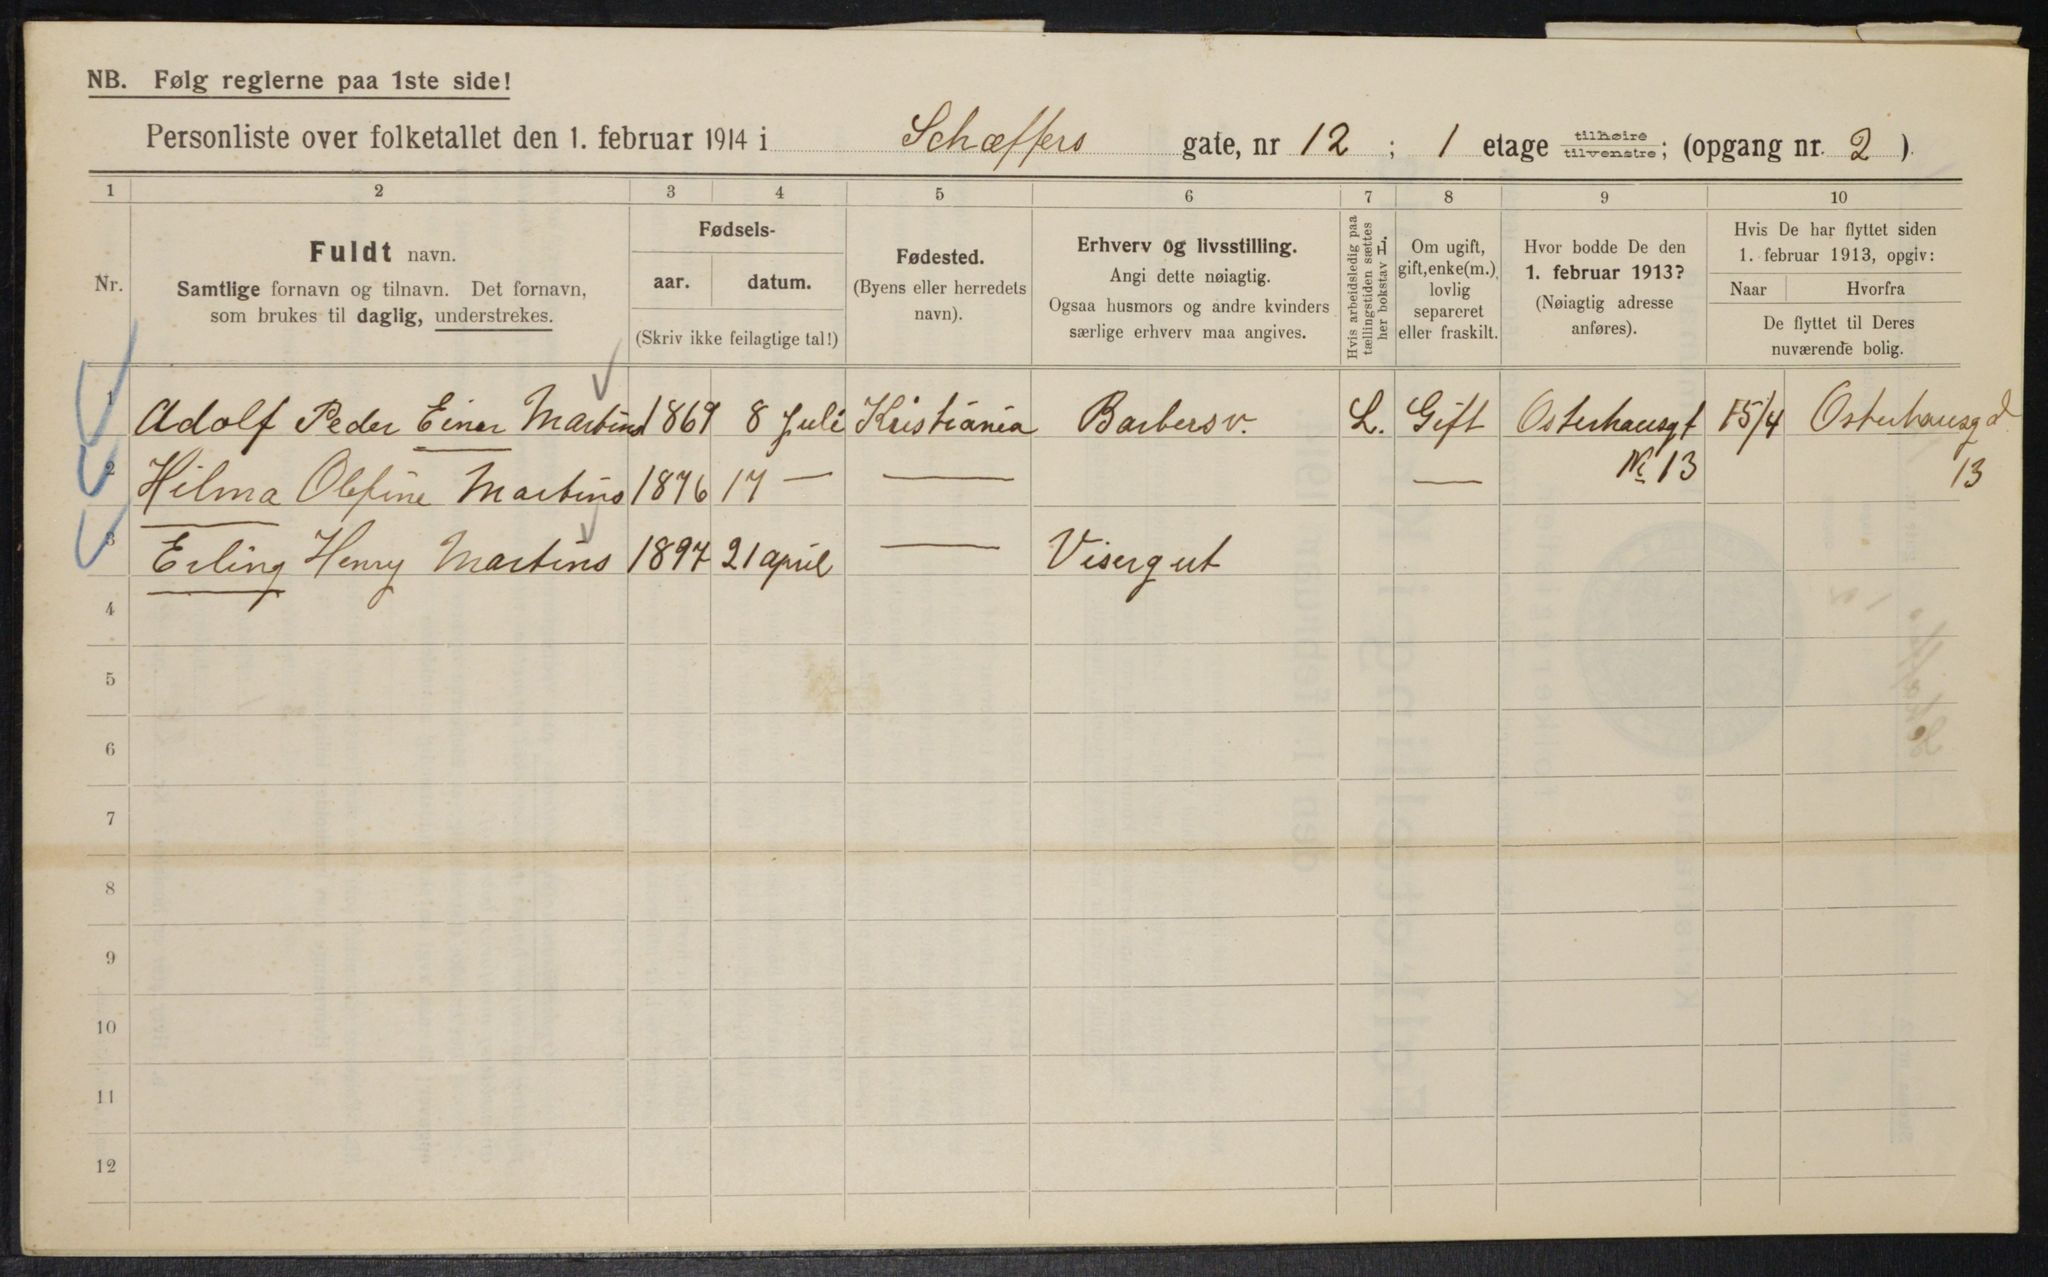 NB. Følg reglerne paa 1ste side!
Personliste over folketallet den 1. februar 1914 i Schæffers gate, nr 12 ; 1 etage tilhøire tilvenstre; (opgang nr. 2 ).
1 2 3 4 5 6 7 8 9 10
Nr.
Fuldt navn.
Samtlige fornavn og tilnavn. Det fornavn,
som brukes til daglig, understrekes.
Fødsels-
aar. datum.
(Skriv ikke feilagtige tal!)
Fødested.
(Byens eller herredets
navn).
Erhverv og livsstilling.
Angi dette nøiagtig.
Ogsaa husmors og andre kvinders
særlige erhverv maa angives.
Hvis arbeidsledig paa
tællingstiden sættes
her bokstav L.
Om ugift,
gift, enke(m.),
lovlig
separeret
eller fraskilt.
Hvor bodde De den
1. februar 1913?
(Nøiagtig adresse
anføres).
Hvis De har flyttet siden
1. februar 1913, opgiv:
Naar Hvorfra
De flyttet til Deres
nuværende bolig.
1 Adolf Peder Einar Martins 1869 8 Juli Kristiania Barbersv. L. Gift Osterhausgt 15/4 Osterhausgd
2 Hilma Olefine Martins 1876 17 — — — Nr 13 13
3 Erling Henry Martins 1897 21 april — Visergut
4
5
6
7
8
9
10
11
12